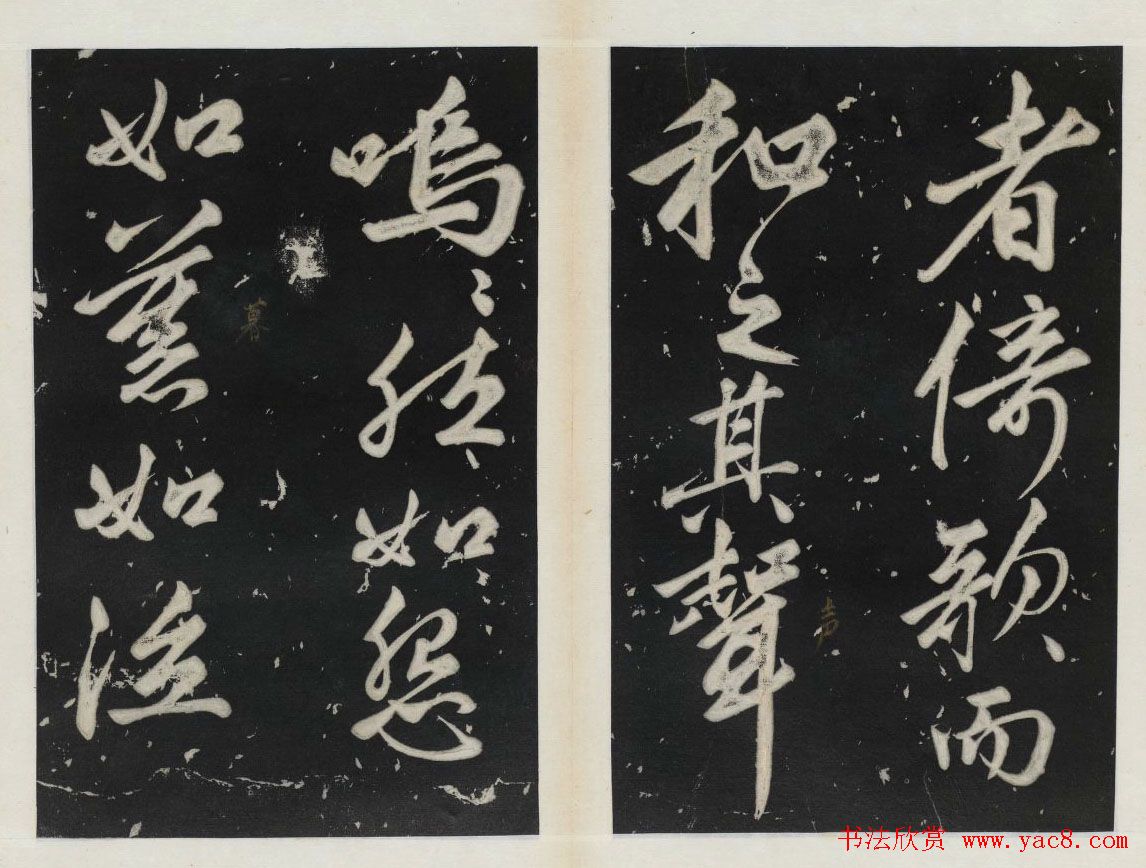 者倚歌而
和之其聲
声
嗚〻然如怨
如慕如泣
暮
书法欣赏 www.yac8.com